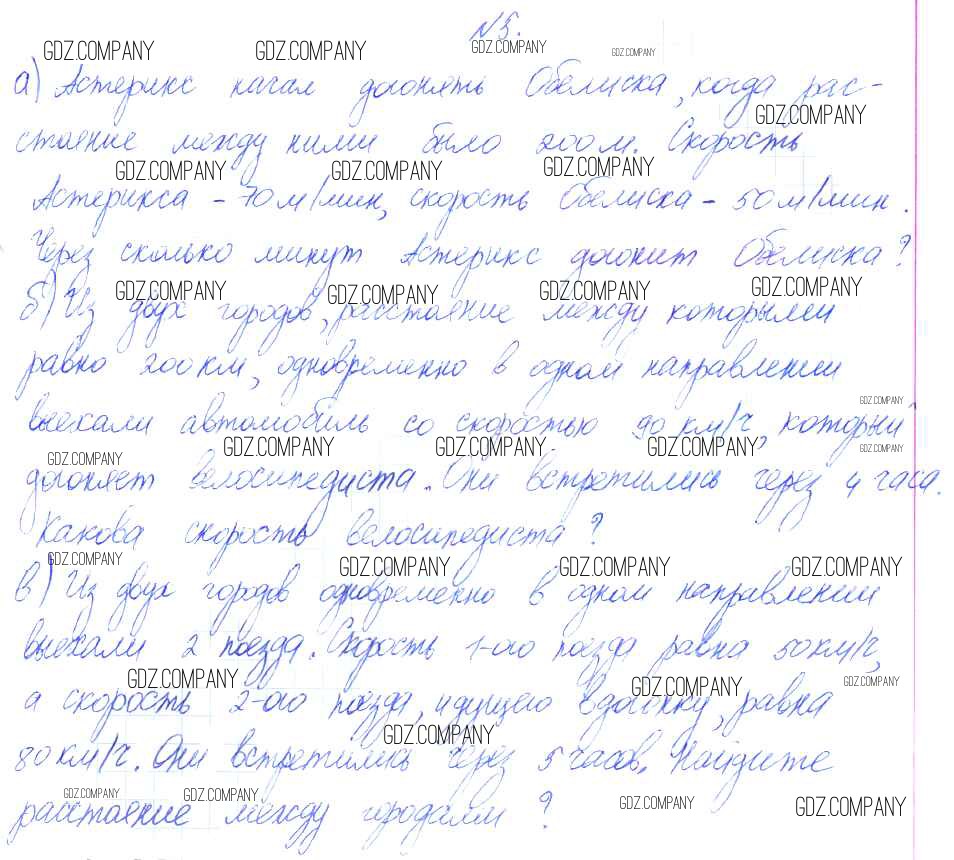 №5.
а) Астерикс начал догонять Обелиска, когда рас-
стояние между ними было 200 м. Скорость
Астерикса – 70 м/мин, скорость Обелиска – 50 м/мин.
Через сколько минут Астерикс догонит Обелиска?
б) Из двух городов, расстояние между которыми
равно 200 км, одновременно в одном направлении
выехали автомобиль со скоростью 90 км/ч, который
догоняет велосипедиста. Они встретились через 4 часа.
Какова скорость велосипедиста?
в) Из двух городов одновременно в одном направлении
выехали 2 поезда. Скорость 1-ого поезда равна 50 км/ч,
а скорость 2-ого поезда, идущего вдогонку, равна
80 км/ч. Они встретились через 5 часов. Найдите
расстояние между городами?
GDZ.COMPANY GDZ.COMPANY GDZ.COMPANY GDZ.COMPANY
GDZ.COMPANY
GDZ.COMPANY GDZ.COMPANY GDZ.COMPANY
GDZ.COMPANY GDZ.COMPANY GDZ.COMPANY GDZ.COMPANY
GDZ.COMPANY
GDZ.COMPANY GDZ.COMPANY GDZ.COMPANY GDZ.COMPANY GDZ.COMPANY
GDZ.COMPANY GDZ.COMPANY GDZ.COMPANY GDZ.COMPANY
GDZ.COMPANY GDZ.COMPANY GDZ.COMPANY
GDZ.COMPANY
GDZ.COMPANY GDZ.COMPANY GDZ.COMPANY GDZ.COMPANY